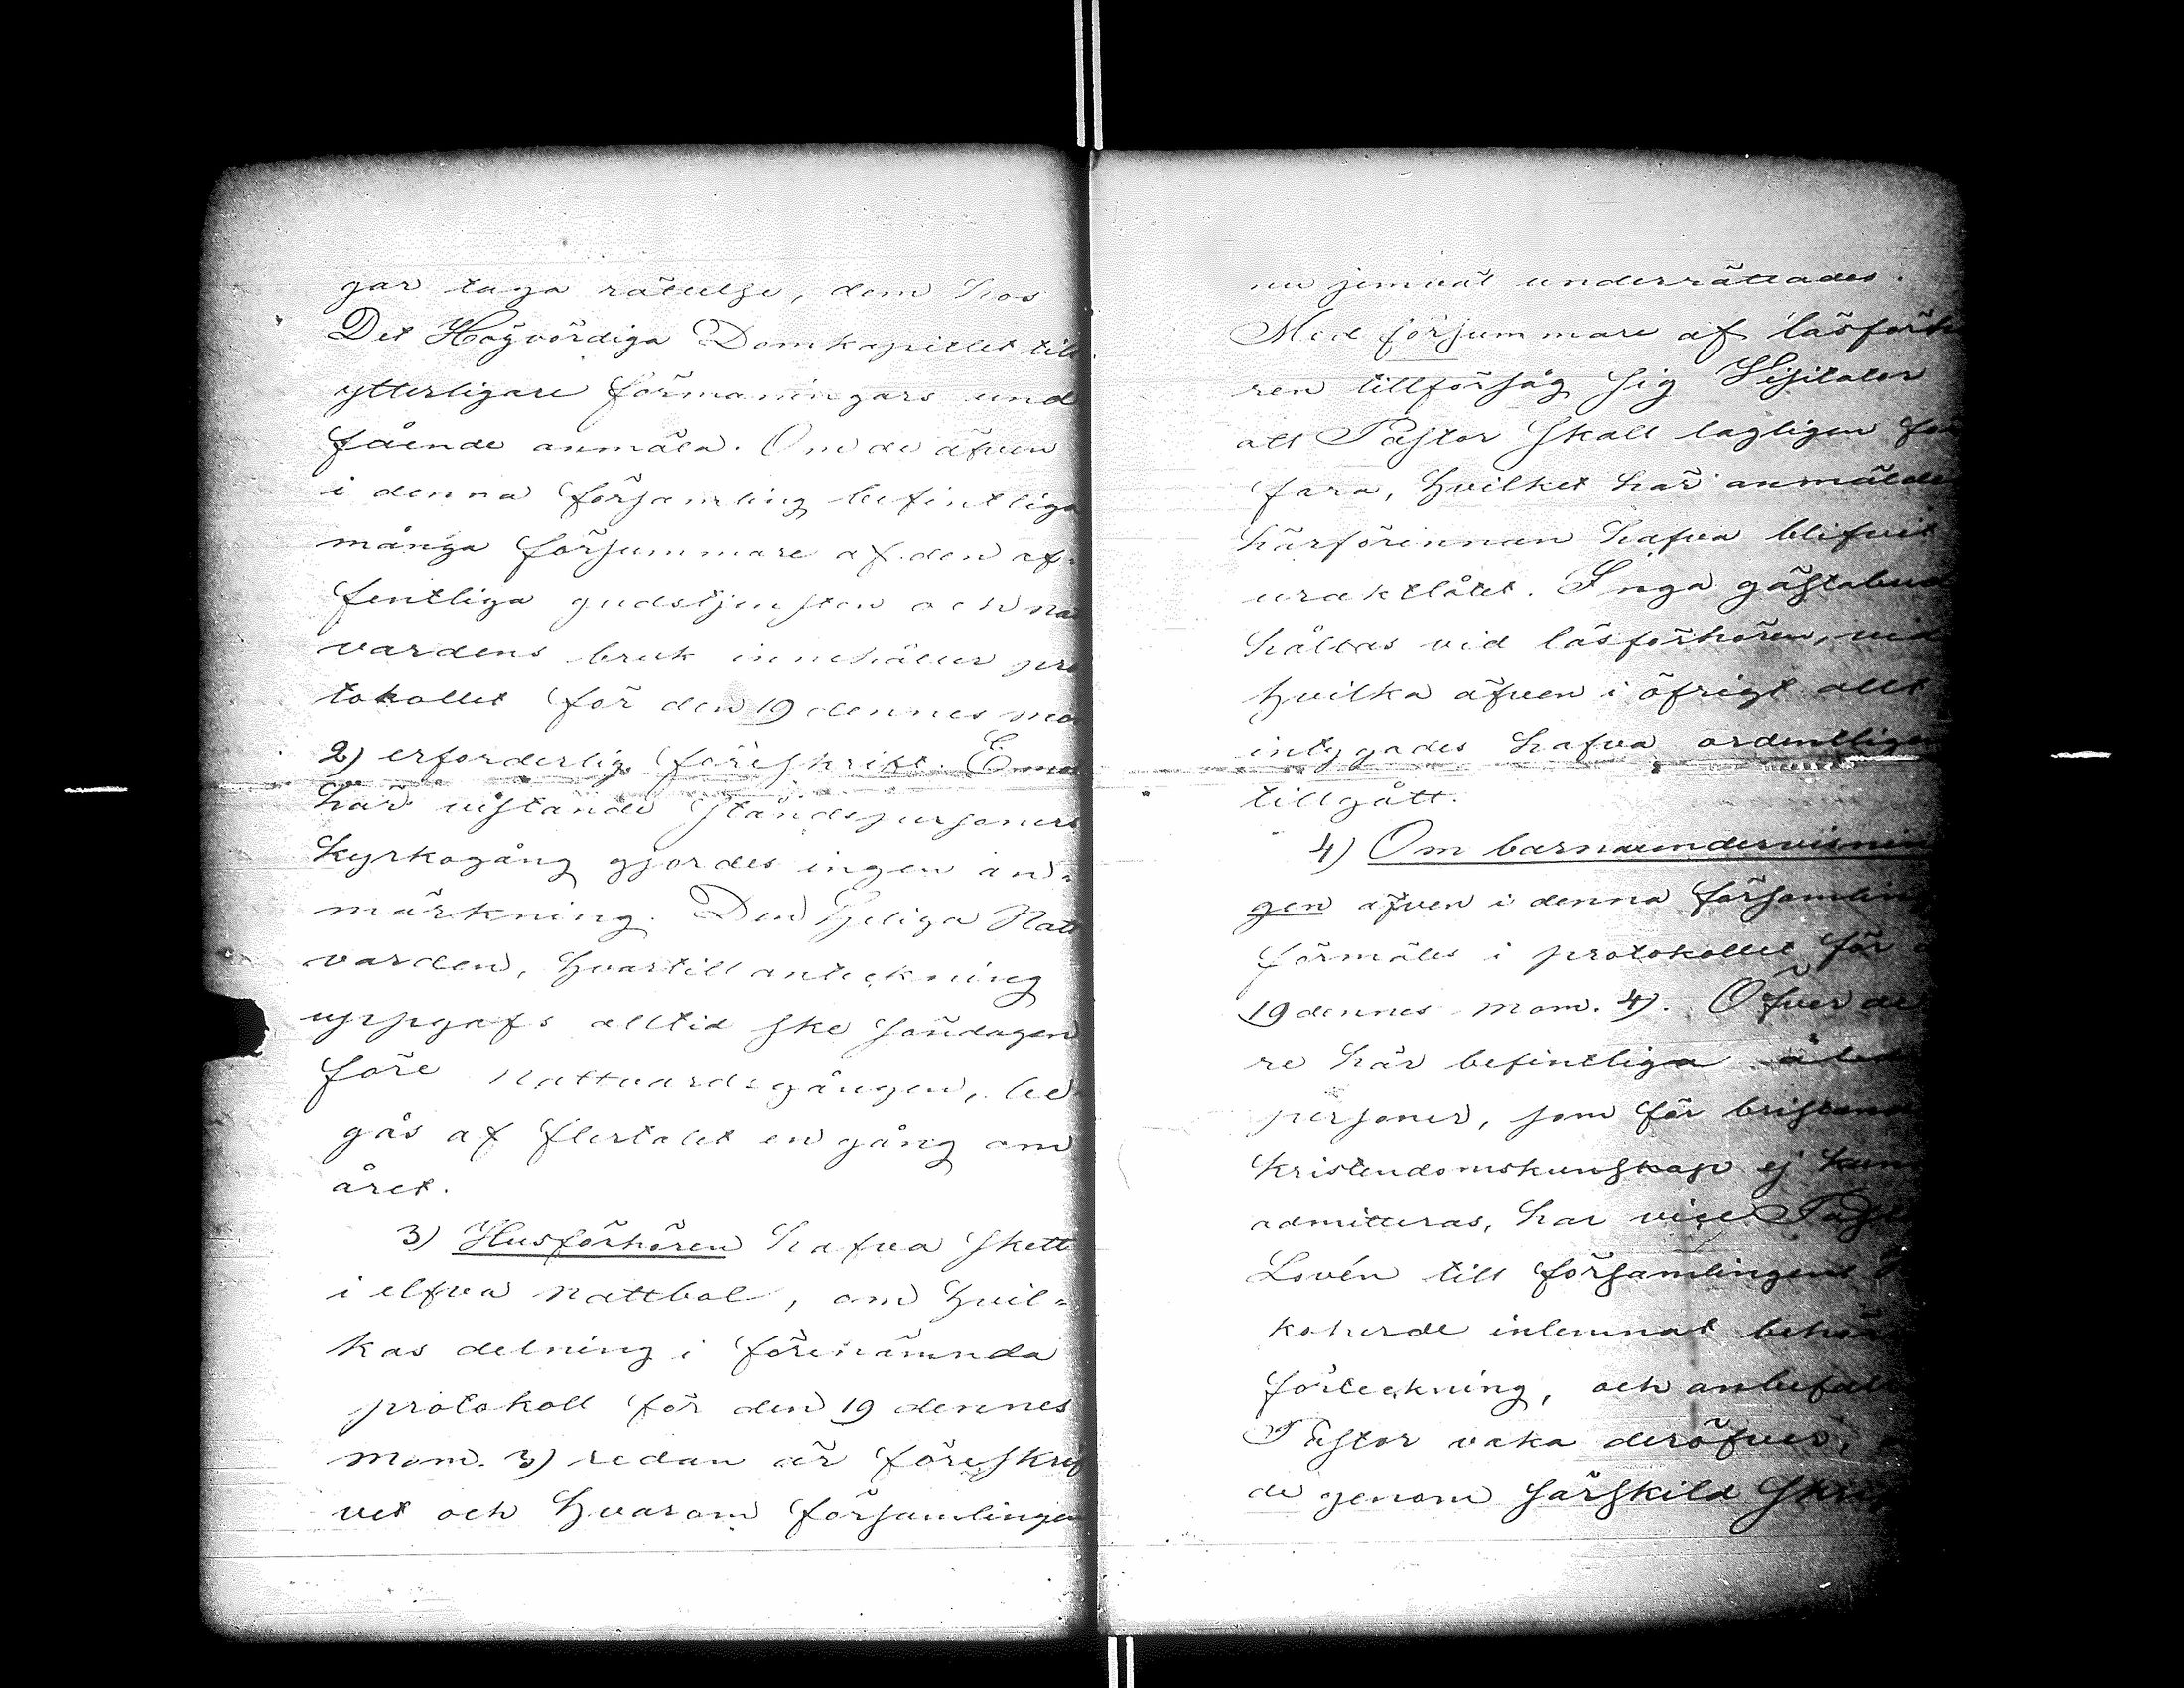 gar taga rättelse, dem hos
Det Högvördiga Domkapitlet till
ytterligare förmaningars und
fående anmäla. Om de äfven
i denna församling befintliga
många försummare af den of-
fentliga gudstjensten och na
vardens bruk innehåller pro
tokollet för den 19 dennes mo
2) erforderlig föreskrift. Emo
här vistande ståndspersoners
kyrkogång gjordes ingen an=
märkning. Den Heliga Natt
varden, hvartill anteckning
uppgafs alltid ske söndagen
före nattvardsgången, be
gås af flertalet en gång om
året.
3) Husförhören hafva skett
i elfva nattbol, om hvil=
kas delning i förenämnda
protokoll för den 19 dennes
mom. 3) redan är föreskrif
vet och hvarom församlingen
nu jemväl underrättades.
Med försummare af läsförhö
ren tillförsåg sig Visitator
att Pastor skall lagligen för
fara, hvilket här anmälde
härförinnan hafva blifvit
uraktlåtet. Inga gästabud
hållas vid läsförhören, vid
hvilka äfven i öfrigt allt
intygades hafva ordentligen
tillgått.
4) Om barnaundervisnin
gen äfven i denna församling
förmäles i protokollet för
19 dennes mom. 4). Öfver de
re här befintliga äld
personer, som för bristand
kristendomskunskap ej kun
admitteras, har vice Past
Lovén till församlingens
koherde inlemnat behör
förteckning, och anbefal
Pastor vaka deröfver,
de genom särskild skri